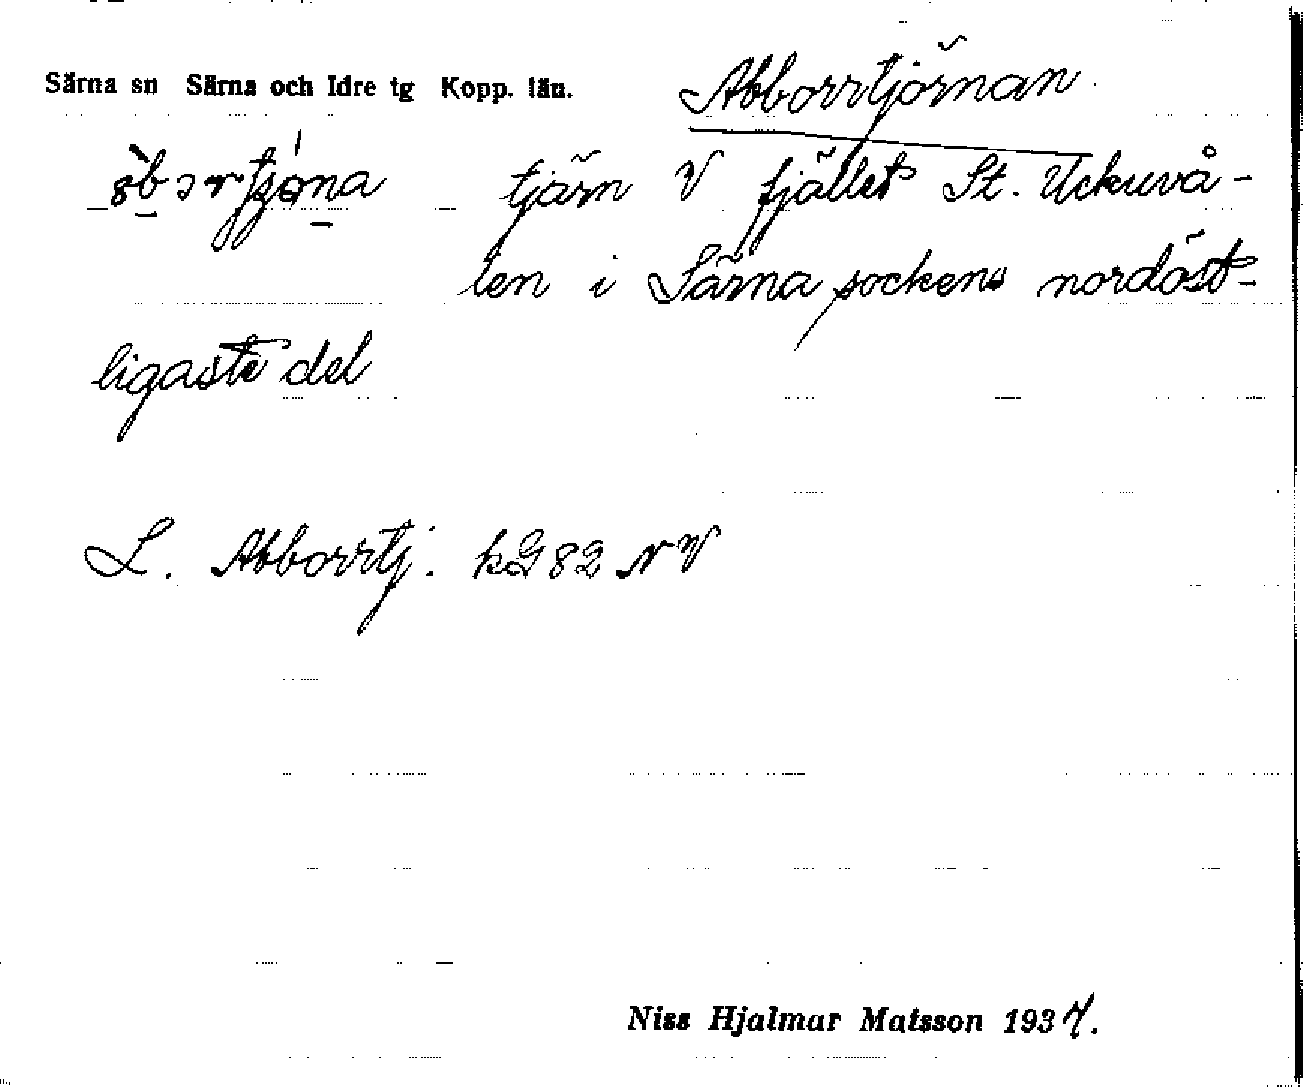 Särna sn Särna och Idre tg Kopp. län. Abborrtjörnan
tjärn V fjället St. Uckuvå-
len i Särna sockens nordöst-
ligaste del
L. Abborrtj. kG 82 NV
Niss Hjalmar Matsson 1937.